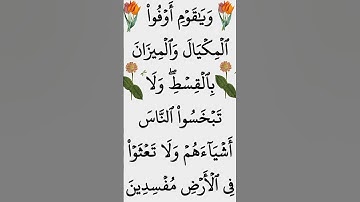 وَيَٰقَوْمِ أَوْفُوا۟
ٱلْمِكْيَالَ وَٱلْمِيزَانَ
بِٱلْقِسْطِ ۖ وَلَا
تَبْخَسُوا۟ ٱلنَّاسَ
أَشْيَآءَهُمْ وَلَا تَعْثَوْا۟
فِى ٱلْأَرْضِ مُفْسِدِينَ